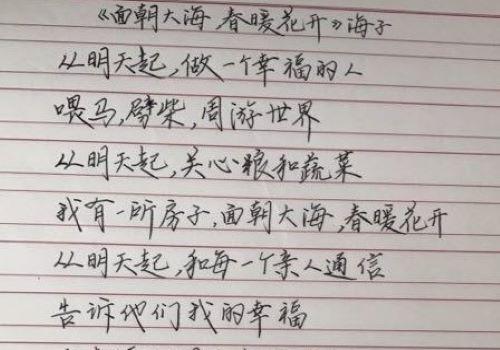 《面朝大海,春暖花开》海子
从明天起,做一个幸福的人
喂马,劈柴,周游世界
从明天起,关心粮和蔬菜
我有一所房子,面朝大海,春暖花开
从明天起,和每一个亲人通信
告诉他们我的幸福